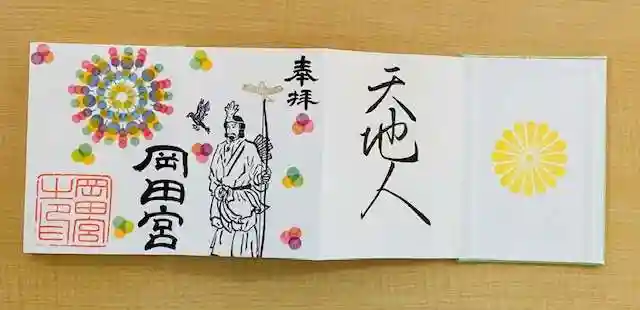 奉拝
岡田宮
岡田宮
天地人